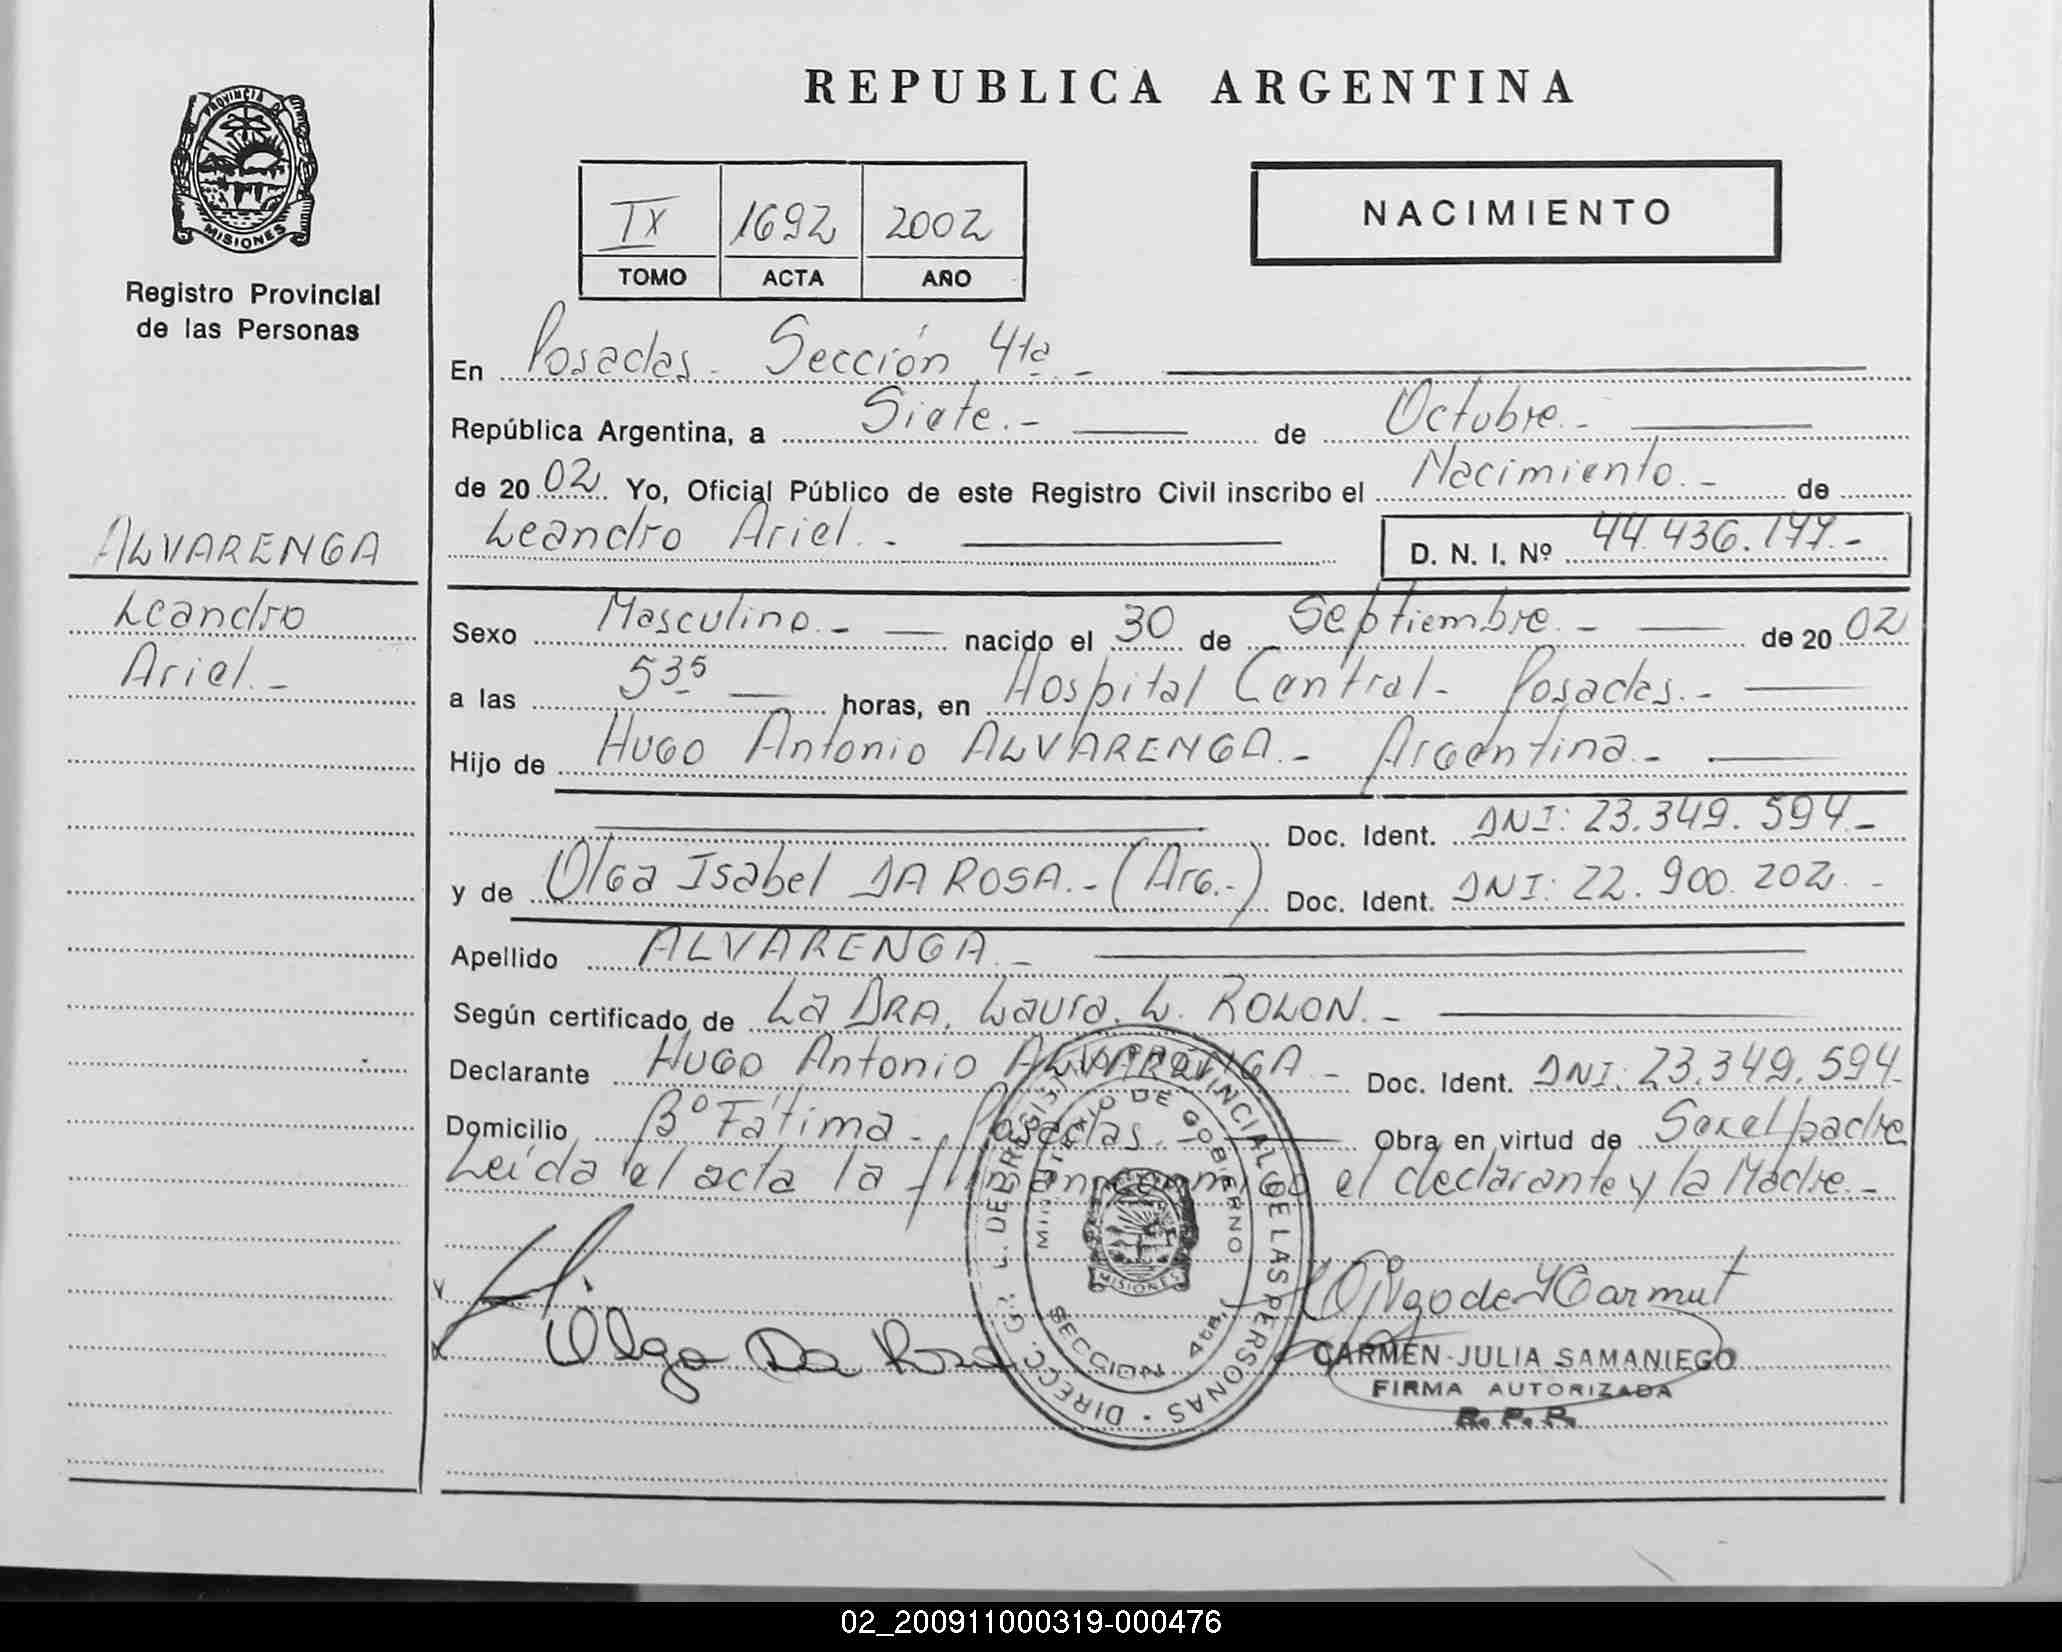 PROVINCIA DE
MISIONES
Registro Provincial
de las Personas
ALVARENGA
Leandro
Ariel.-
REPUBLICA ARGENTINA
IX 1692 2002
TOMO ACTA AÑO
NACIMIENTO
En Posadas - Sección 4ta -
República Argentina, a Siete.- de Octubre.-
de 2002 Yo, Oficial Público de este Registro Civil inscribo el Nacimiento.- de
Leandro Ariel.- D. N. I. Nº 44.436.177.-
Sexo Masculino.- nacido el 30 de Septiembre.- de 2002
a las 5 35 horas, en Hospital Central- Posadas.-
Hijo de Hugo Antonio ALVARENGA.- Argentina.-
Doc. Ident. DNI: 23.349.594-
y de Olga Isabel DA ROSA.- (Arg.-) Doc. Ident. DNI: 22.900.202.-
Apellido ALVARENGA.-
Según certificado de La DRA. Laura. L. ROLON.-
Declarante Hugo Antonio ALVARENGA- Doc. Ident. DNI. 23.349.594-
Domicilio Bº Fátima - Posadas.- Obra en virtud de Ser el padre
Leída el acta la firman conmigo el declarante y la Madre.-
Olga Da Rosa
DIRECC. GRAL. DEL REGISTRO PROVINCIAL DE LAS PERSONAS
MINISTERIO DE GOBIERNO
MISIONES
SECCION 4ta.
CARMEN JULIA SAMANIEGO
FIRMA AUTORIZADA
R. P. P.
02_200911000319-000476